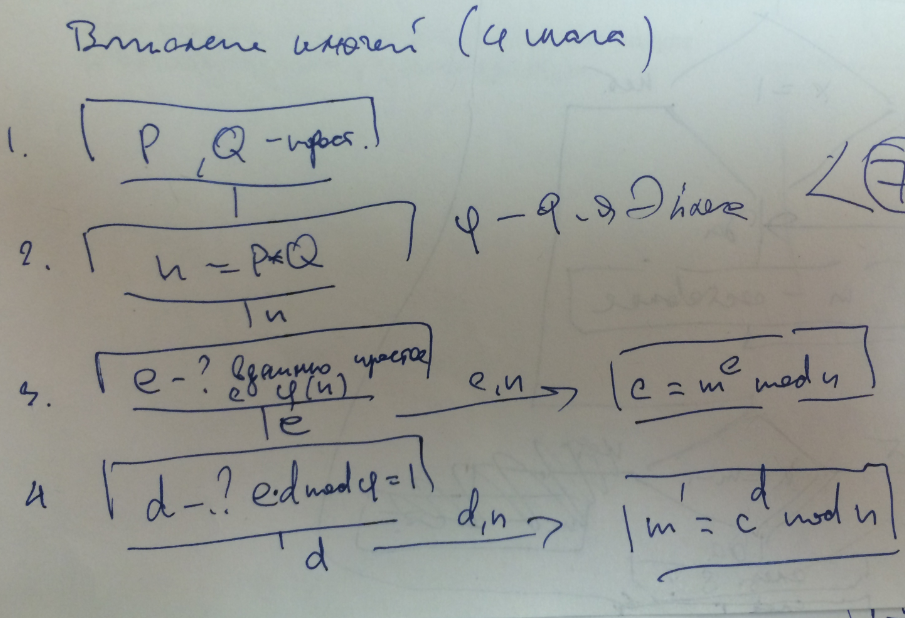 ключей (4 шага)
1. P, Q - прост.
2. n = P*Q
φ - ф-я Эйлера
< 7
n
3. e - ? взаимно простое
с φ(n)
e
e, n
c = m^e mod n
4 d - ? e·d mod φ = 1
d
d, n
m' = c^d mod n